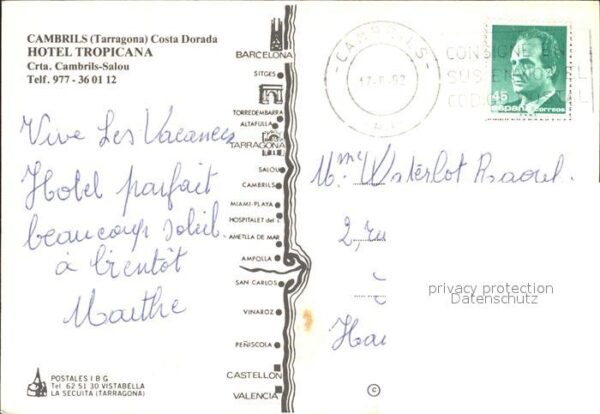 CAMBRILS (Tarragona) Costa Dorada
HOTEL TROPICANA
Crta. Cambrils-Salou
Telf. 977 - 36 01 12
Vive Les Vacances
Hotel parfait
beaucoup soleil.
à bientôt
Marthe
POSTALES I B G
Tel 62 51 30 VISTABELLA
LA SECUITA (TARRAGONA)
BARCELONA
SITGES
TORREDEMBARRA
ALTAFULLA
TARRAGONA
SALOU
CAMBRILS
MIAMI-PLAYA
HOSPITALET del I.
AMETLLA DE MAR
AMPOLLA
SAN CARLOS
VINAROZ
PEÑISCOLA
CASTELLON
VALENCIA
-CAMBRILS-
CONSIGNE
SUS EN
COD
45
españa
correos
Mme
Raoul.
2, ru
privacy protection
Datenschutz
Hai
©